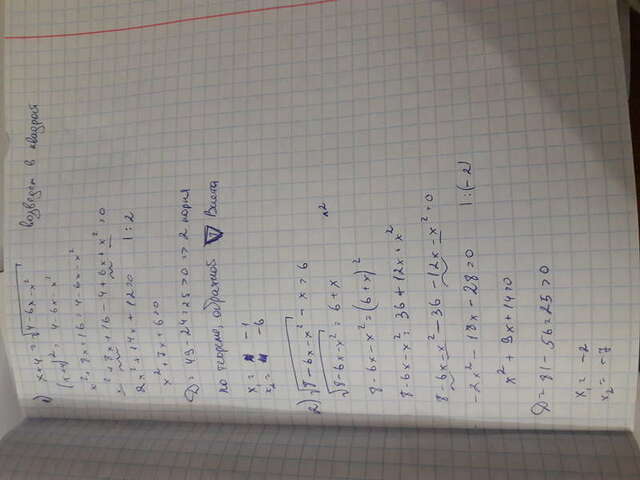 1) x+4 = √4-6x-x² возведем в квадрат
(x+4)² = 4-6x-x²
x²+8x+16 = 4-6x-x²
x²+8x+16-4+6x+x²=0
2x²+14x+12=0 | :2
x²+7x+6=0
D = 49-24=25>0 => 2 корня
по теореме, обратной Виета
x₁= -1
x₂= -6
2) √8-6x-x² - x = 6
√8-6x-x² = 6+x ^2
8-6x-x² = (6+x)²
8-6x-x² = 36+12x+x²
8-6x-x²-36-12x-x²=0
-2x²-18x-28=0 | :(-2)
x²+9x+14=0
D=81-56=25>0
x₁= -2
x₂= -7